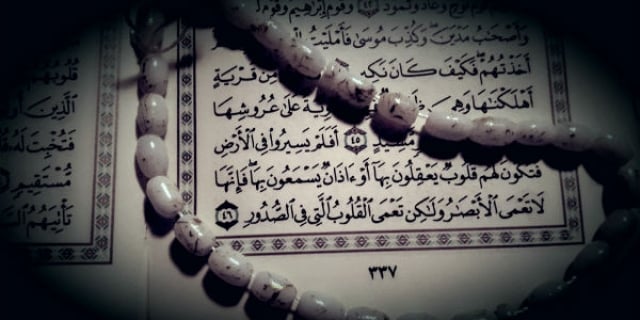 نُوحٍ وَعَادٌ وَثَمُودُ ٤٢ وَقَوْمُ إِبْرَٰهِيمَ وَقَوْمُ
وَأَصْحَٰبُ مَدْيَنَ وَكُذِّبَ مُوسَىٰ فَأَمْلَيْتُ
أَخَذْتُهُمْ فَكَيْفَ كَانَ نَكِ مِّن قَرْيَةٍ
أَهْلَكْنَٰهَا وَهِىَ يَةٌ عَلَىٰ عُرُوشِهَا
مَّشِيدٍ ٤٥ أَفَلَمْ يَسِيرُوا۟ فِى ٱلْأَرْضِ
فَتَكُونَ لَهُمْ قُلُوبٌ يَعْقِلُونَ بِهَآ أَوْ ءَاذَانٌ يَسْمَعُونَ بِهَا ۖ فَإِنَّهَا
لَا تَعْمَى ٱلْأَبْصَٰرُ وَلَٰكِن تَعْمَى ٱلْقُلُوبُ ٱلَّتِى فِى ٱلصُّدُورِ ٤٦
٣٣٧
قُلُوبُهُمْ
ٱلَّذِينَ أُو
فَتُخْبِتَ لَهُۥ قُ
مُّسْتَقِيمٍ
تَأْتِيَهُمُ ٱل